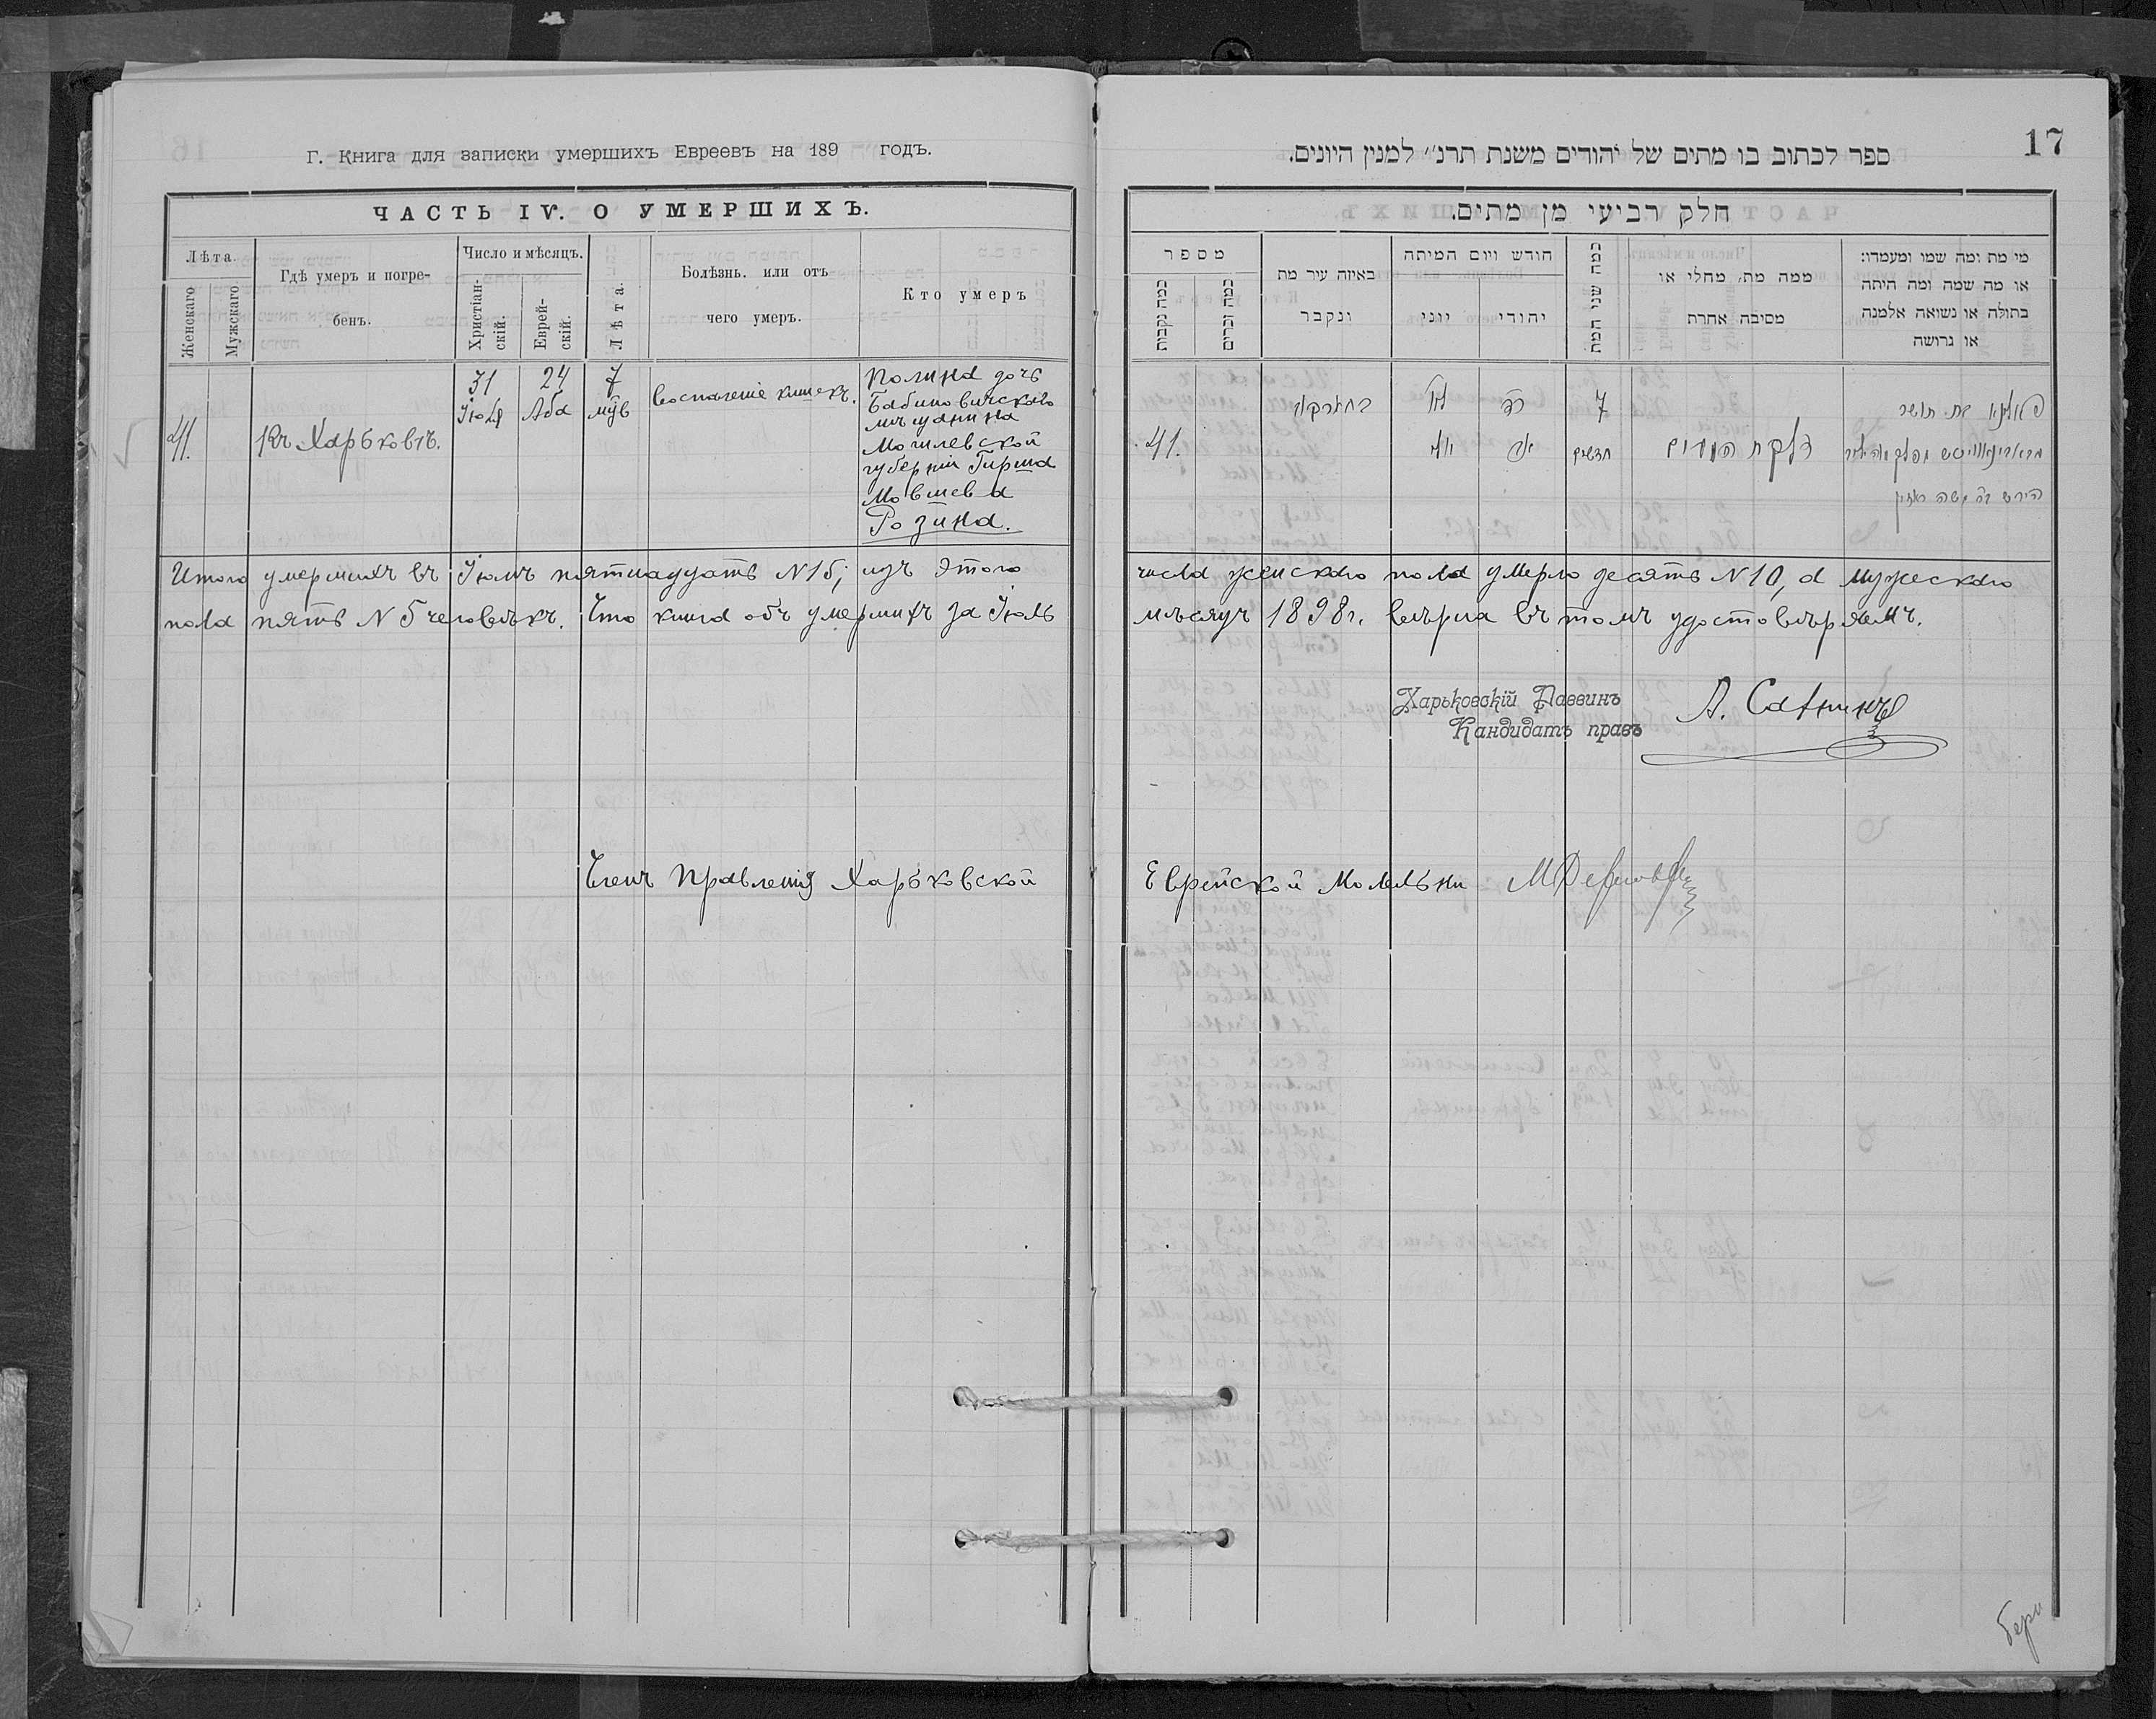 Г. Книга для записки умершихъ Евреевъ на 189 годъ.
ЧАСТЬ IV. О УМЕРШИХЪ.
Лѣта.
Женскаго
Мужскаго
Гдѣ умеръ и погре-
бенъ.
Число и мѣсяцъ.
Христіан-
скій.
Еврей-
скій.
Лѣта.
Болѣзнь. или отъ
чего умеръ.
Кто умеръ
41.
Въ Харьковѣ.
31
Іюля
24
Аба
7
мѣс
воспаленіе кишекъ.
Полина дочь
Бабиновичскаго
мѣщанина
Могилевской
губерніи Гирша
Мовшева
Розина.
17
ספר לכתוב בו מתים של יהודים משנת תרנ״ למנין היונים.
חלק רביעי מן מתים.
מספר
כמה נקבות
כמה זכרים
באיזה עיר מת
ונקבר
חודש ויום המיתה
יוני
יהודי
כמה שני המת
ממה מת, מחלי או
מסיבה אחרת
מי מת ומה שמו ומעמדו:
או מה שמה ומה היתה
בתולה או נשואה אלמנה
או גרושה
41.
בחארקאוו
לא
יולי
כד
אב
7
חדשים
דלקת המעים
פאלינא בת תושב
הירש ב״ר משה ראזין
Итого умершихъ въ Іюлѣ пятнадцать N 15; изъ этого числа женскаго пола умерло десять N 10, а мужескаго
пола пять N 5 человѣкъ. Что книга объ умершихъ за Іюль мѣсяцъ 1898 г. вѣрна въ томъ удостовѣряемъ.
Харьковскій Раввинъ
Кандидатъ правъ
Членъ Правленія Харьковской Еврейской Молельни